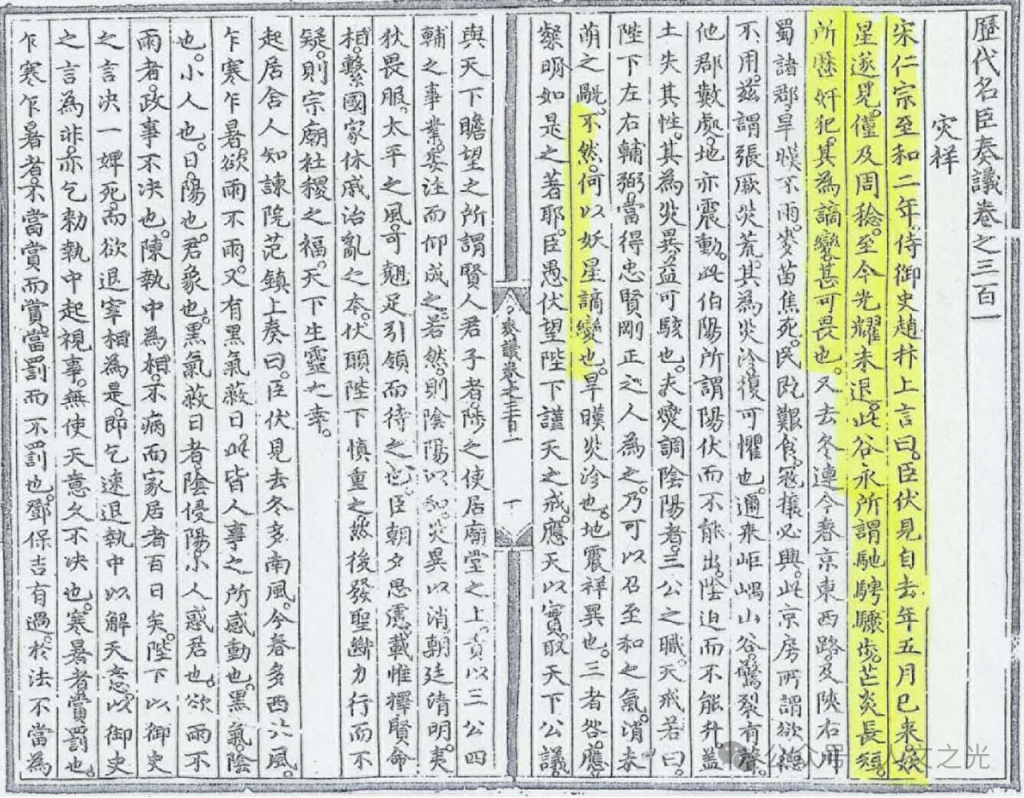 歷代名臣奏議卷之三百一
災祥
宋仁宗至和二年。侍御史趙抃上言曰。臣伏見自去年五月已來。妖
星遂見。僅及周稔。至今光耀未退。此谷永所謂馳騁驟步。芒炎長短。
所歷奸犯。其為謫變甚可畏也。又去冬連今春京東西路。及陝右川
蜀諸郡。旱暵不雨。麥苗焦死。民既艱食。寇攘必興。此京房所謂欲德
不用。茲謂張厥災荒。其為災沴。復可懼也。邇來岠嵎山谷。驚裂有聲。
他郡數處。地亦震動。此伯陽所謂陽伏而不能出。陰迫而不能升。蓋
土失其性。其為災異。益可駭也。夫燮調陰陽者。三公之職。天戒若曰
陛下左右輔弼。當得忠賢剛正之人為之。乃可以召至和之氣。消未
萌之。不然。何以妖星謫變也。旱暵災沴也。地震祥異也。三者咎應。
粲明如是之著耶。臣愚伏望陛下謹天之戒。應天以實。取天下公議。
奏議卷之三百一
一
與天下瞻望之所謂賢人君子者。陟之使居廟堂之上。責以三公四
輔之事業。委注而仰成之。若然。則陰陽以和。災異以消。朝廷清明。夷
狄畏服。太平之風。可翹足引領而待之也。臣朝夕思慮。載惟擇賢命
相。繫國家休戚治亂之本。伏願陛下慎重之。然後發聖斷力行而不
疑。則宗廟社稷之福。天下生靈之幸。
起居舍人知諫院范鎮上奏曰。臣伏見去冬多南風。今春多西北風。
乍寒乍暑。欲雨不雨。又有黑氣蔽日。此皆人事之所感動也。黑氣。陰
也。小人也。日。陽也。君象也。黑氣蔽日者。陰侵陽。小人惑君也。欲雨不
雨者。政事不決也。陳執中為相。不病而家居者百日矣。陛下以御史
之言決一婢死。而欲退宰相為是。即乞速退執中以解天意。以御史
之言為非。亦乞勑執中起視事。無使天意久不決也。寒暑者。賞罰也。
乍寒乍暑者。不當賞而賞。當罰而不罰也。鄧保吉有過。於法不當為
公众号·人文之光